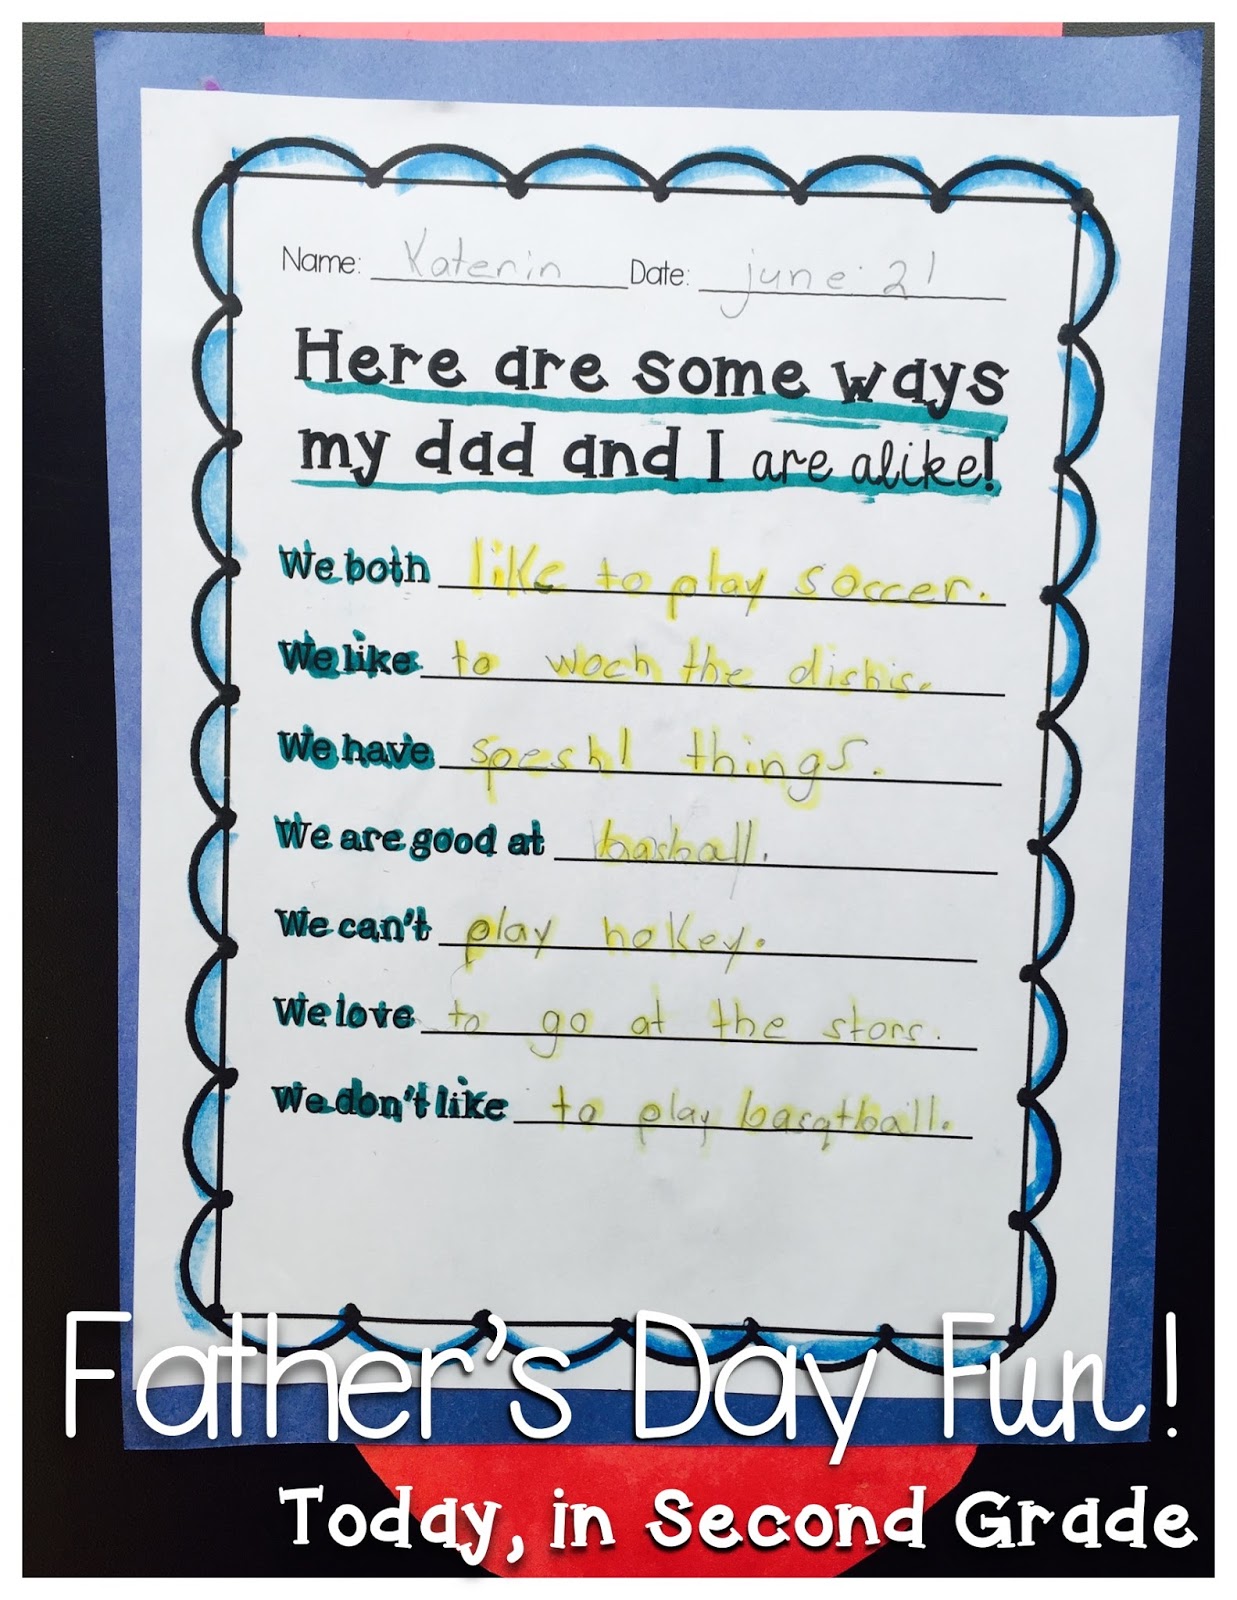 Name: Katerin Date: june 21
Here are some ways
my dad and I are alike!
We both like to play soccer.
We like to woch the dishis.
We have speshl things.
We are good at basball.
We can't play hokey.
We love to go at the stors.
We don't like to play basqtball.
Father's Day Fun!
Today, in Second Grade